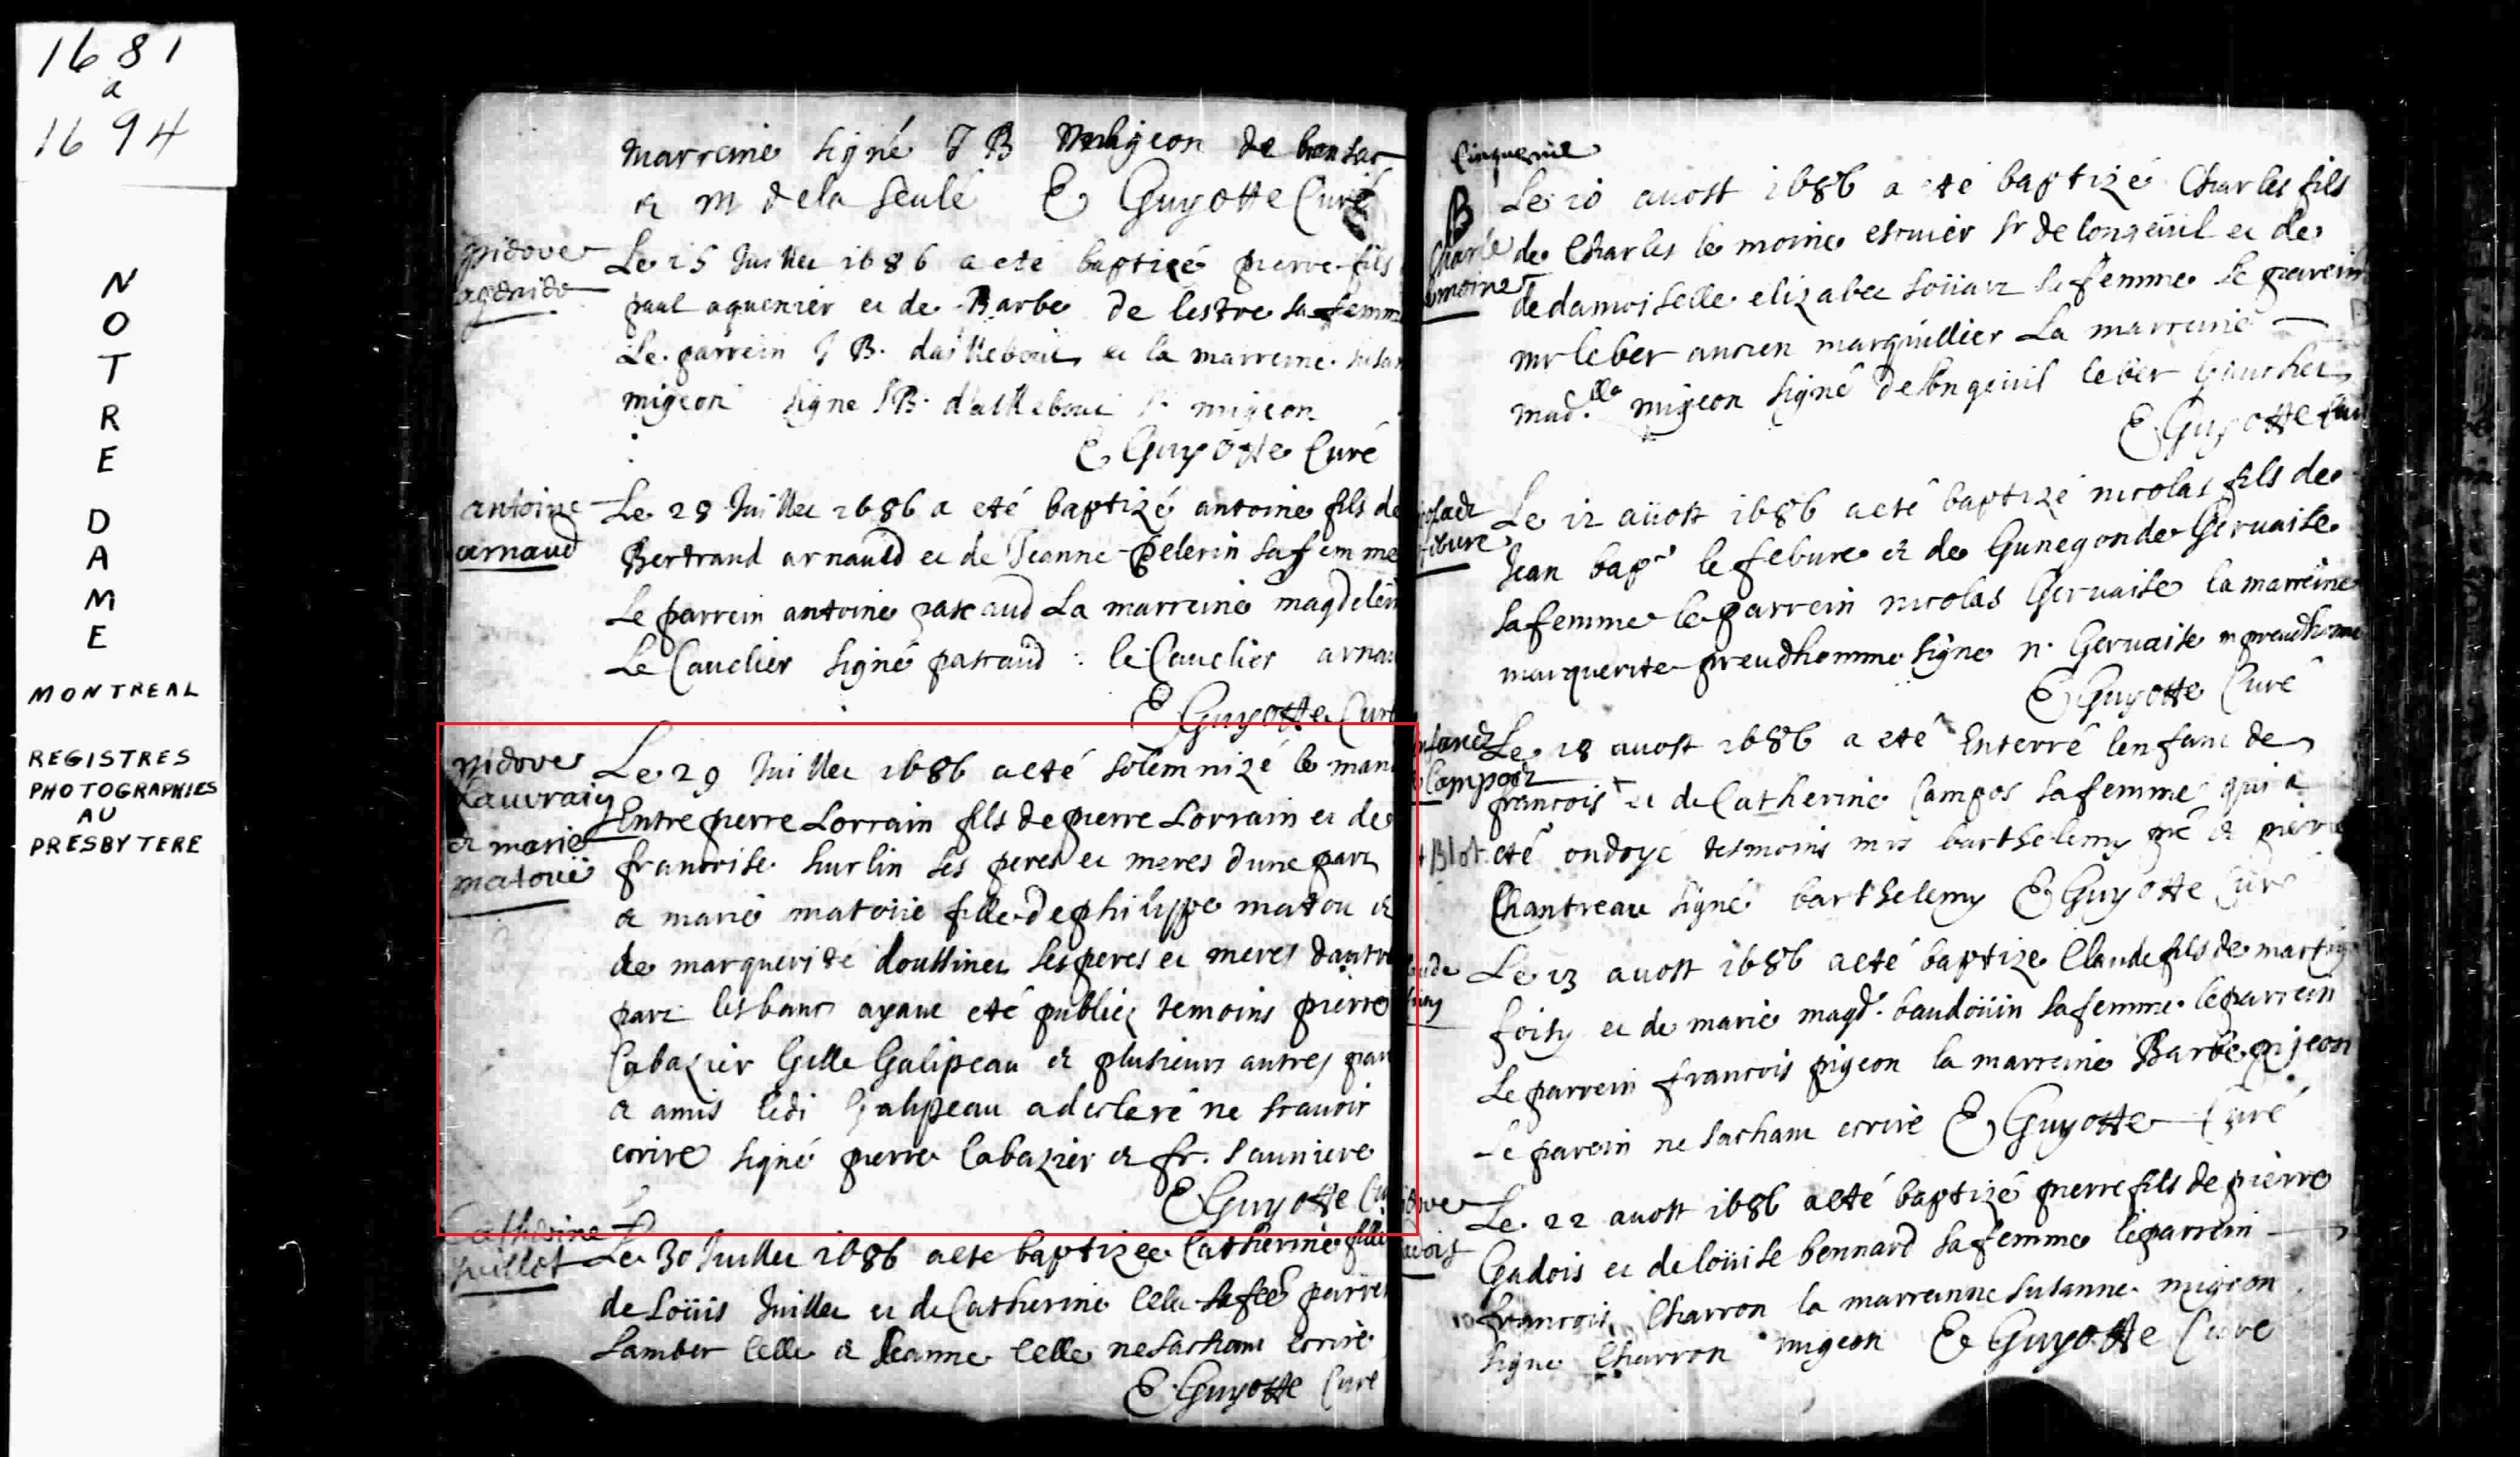 1681
a
1694
NOTRE
DAME
MONTREAL
REGISTRES
PHOTOGRAPHIES
AU
PRESBYTERE
marreine signé J B Migeon de bransac
et m dela seulé E Guyotte Curé
pidover
Le 25 Juillet 1686 a eté baptizé pierre fils
paul aguenier et de Barbe de lestre sa femm
Le parrein J B. dailleboust et la marreine susan
migeon signe J B. dailleboust S. migeon
E Guyotte Curé
antoine
arnaud
Le 28 Juillet 1686 a eté baptizé antoine fils de
Bertrand arnauld et de Jeanne Pelerin sa femme
Le parrein antoine pascaud La marreine magdelein
Le Cauelier signé pascaud : le Cauelier arnau
E Guyotte Curé
pidover
Lauvraig
et marie
matoüe
Le 29 Juillet 1686 a eté solemnizé le mari
Entre pierre Lorrain fils de pierre Lorrain et de
francoise hurlin ses peres et meres dune part
et marie matoüe fille de philippe matou et
de marguerite doussinet ses peres et meres dautre
part les bancs ayant eté publiez temoins pierre
Cabazier Gille Galipeau et plusieurs autres par
et amis ledi Galipeau a declaré ne scauoir
ecrire signé pierre Cabazier et fr. Sauniere
E Guyotte Cu
Catherine
Juillet
Le 30 Juillet 1686 a ete baptizee Catherine fille
de Loüis Juillet et de Catherine Celle sa fee parrei
Lamber Celle et Jeanne Celle ne sachant ecrire
E. Guyotte Curé
Cinquieme
B
Charle
lemoine
Le 10 auost 1686 a eté baptizé Charles fils
de Charles le moine escuier sr de longeüil et de
de damoiselle elizabet soüart sa femme le parein
mr leber ancien marguillier La marreine
mad.lle migeon signé de longeuil leber Gauchet
E Guyotte Cur
Le 12 aüost 1686 a eté baptizé nicolas fils de
Jean bapt le febure et de Gunegonde Geruaise
sa femme le parrein nicolas Geruaise la marreine
marguerite preudhomme signe n. Geruaise m preudhomme
E Guyotte Curé
Le 18 auost 1686 a eté Enterré lenfant de
francois et de Catherine Campos sa femme qui a
Blot
eté ondoyé tesmoins mrs barthelemy pre et pierre
Chantreau signé barthelemy E Guyotte Curé
Le 13 auost 1686 a eté baptize Claude fils de martin
foisy et de marie magd. baudoüin sa femme le parrein
Le parrein francois pigeon la marreine Barbe pigeon
Le parein ne sachant ecrire E Guyotte Curé
Le 22 auost 1686 a eté baptizé pierre fils de pierre
Gadois et de loüise bennard sa femme le parrein
francois Charron la marreinne susanne migeon
signe Charron migeon E Guyotte Curé